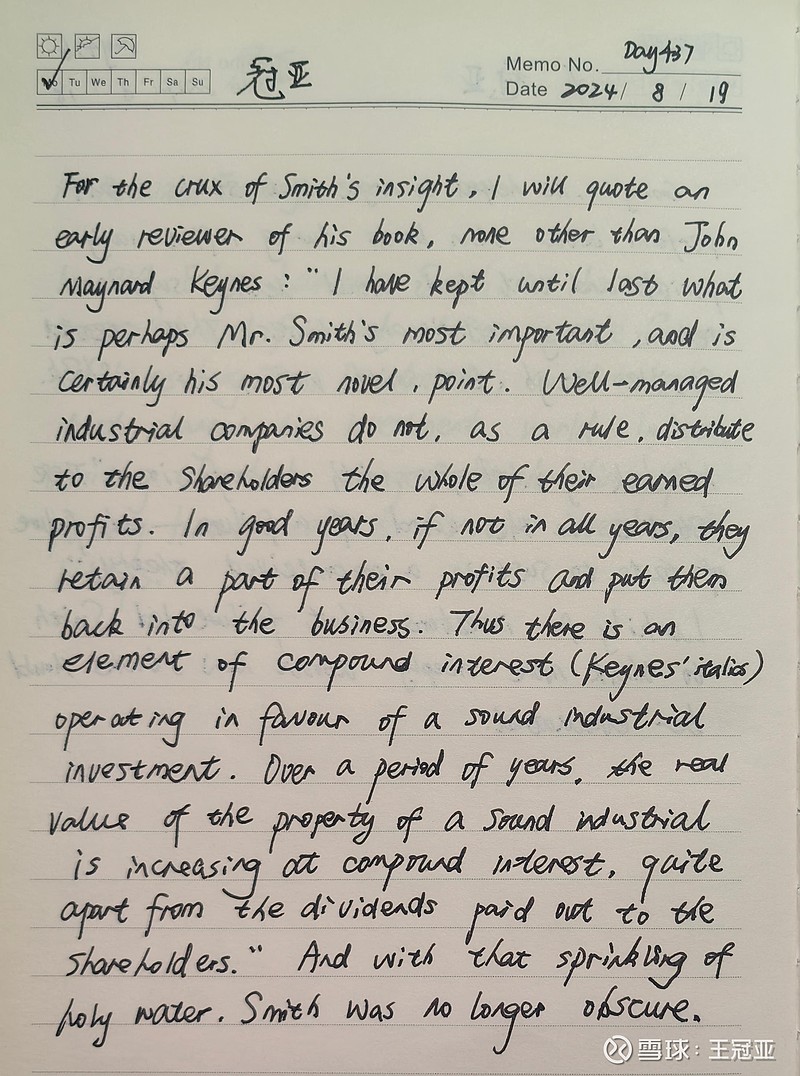 Mo Tu We Th Fr Sa Su
冠亚
Memo No. Day437
Date 2024/ 8 / 19
For the crux of Smith's insight, I will quote an
early reviewer of his book, none other than John
Maynard Keynes: "I have kept until last what
is perhaps Mr. Smith's most important, and is
certainly his most novel, point. Well-managed
industrial companies do not, as a rule, distribute
to the shareholders the whole of their earned
profits. In good years, if not in all years, they
retain a part of their profits and put them
back into the business. Thus there is an
element of compound interest (Keynes' italics)
operating in favour of a sound industrial
investment. Over a period of years, the real
value of the property of a sound industrial
is increasing at compound interest, quite
apart from the dividends paid out to the
shareholders." And with that sprinkling of
holy water, Smith was no longer obscure.
雪球:王冠亚